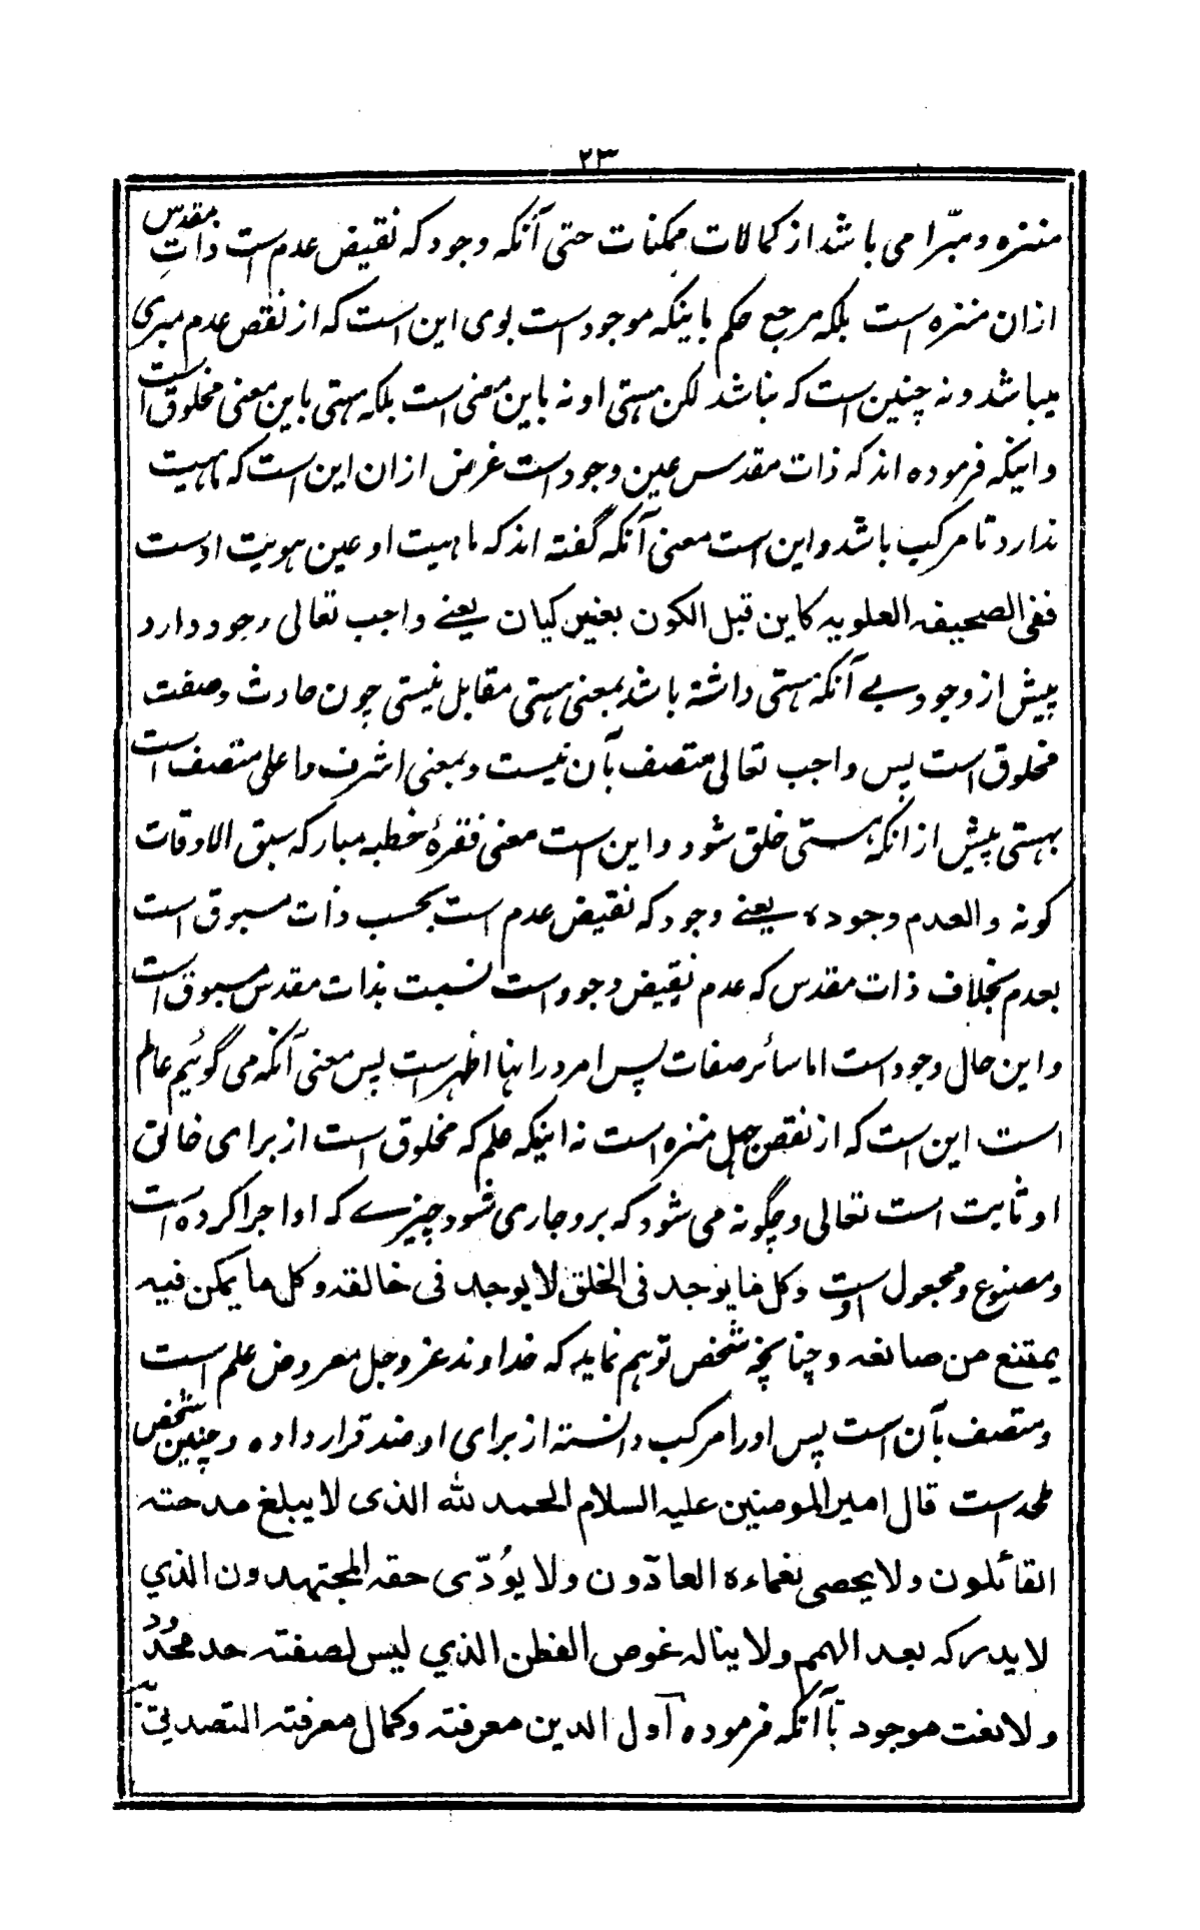 ۲۳
منزه و مبّرا می باشد از کمالات ممکنات حتی آنکه وجود که نقیض عدم است ذاتِ مقدس
ازان منزه است بلکه مرجع حکم باینکه موجود است بوی این است که از نقص عدم مبری
میباشد و نه چنین است که نباشد لکن هستی او نه باین معنی است بلکه هستی باین معنی مخلوق است
و اینکه فرموده اند که ذات مقدس عین وجود است غرض ازان این است که ماهیت
ندارد تا مرکب باشد و این است معنی آنکه گفته اند که ماهیت او عین هویت اوست
ففی الصحیفه العلویه کاین قبل الکون بغیر کیان یعنے واجب تعالی وجود دارد
پیش از وجود بے آنکه هستی داشته باشد بمعنی هستی مقابل نیستی چون حادث و صفت
مخلوق است پس واجب تعالی متصف بآن نیست و بمعنی اشرف و اعلی متصف است
بهستی پیش ازانکه هستی خلق شود و این است معنی فقرهٔ خطبه مبارکه سبق الاوقات
کونه والعدم وجوده یعنے وجود که نقیض عدم است بحسب ذات مسبوق است
بعدم بخلاف ذات مقدس که عدم نقیض وجود است نسبت بذات مقدس مسبوق است
و این حال وجود است اما سائر صفات پس امر درانها اظهر است پس معنی آنکه می گوئیم عالم
است این است که از نقص جهل منزه است نه اینکه علم که مخلوق است از برای خالق
او ثابت است تعالی و چگونه می شود که برو جاری شود چیزے که او اجرا کرده است
و مصنوع و مجعول اوست وکل مایوجد فی الخلق لا یوجد فی خالقه وکل ما یمکن فیه
یمتنع من صانعه و چنانچه شخص توهم نماید که خداوند عز و جل معروض علم است
و متصف بآن است پس اورا مرکب دانسته از برای او ضد قرار داده و چنین شخص
ملحد است قال امیرالمومنین علیه السلام الحمد لله الذی لا یبلغ مدحته
القائلون ولا یحصی نعماءه العادّون ولا یُودّی حقه المجتهدون الذي
لا یدرکه بعد الهمم ولا یناله غوص الفطن الذي لیس لصفته حد محدود
ولا نعت موجود تا آنکه فرموده اول الدین معرفته وکمال معرفته التصدیق به